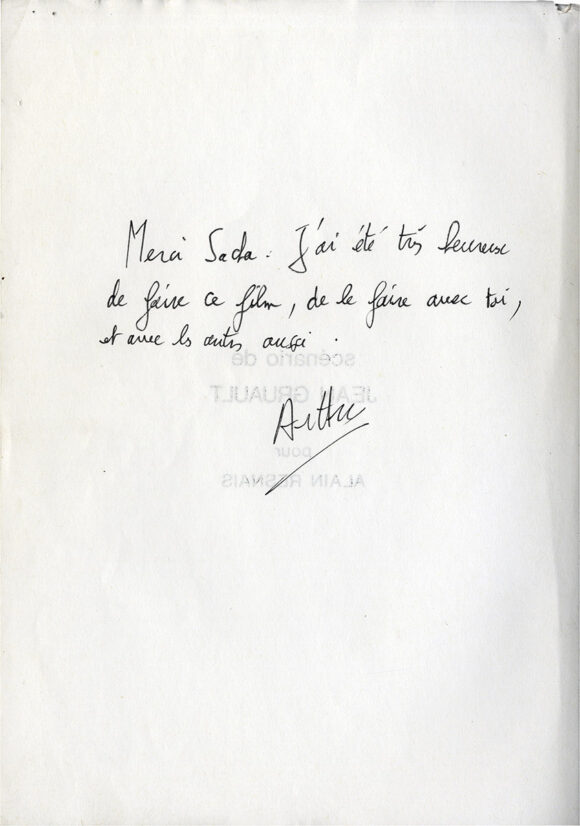 Merci Sacha. J'ai été très heureuse
de faire ce film, de le faire avec toi,
et avec les autres aussi.
scénario de
JEAN GRUAULT
pour
ALAIN RESNAIS